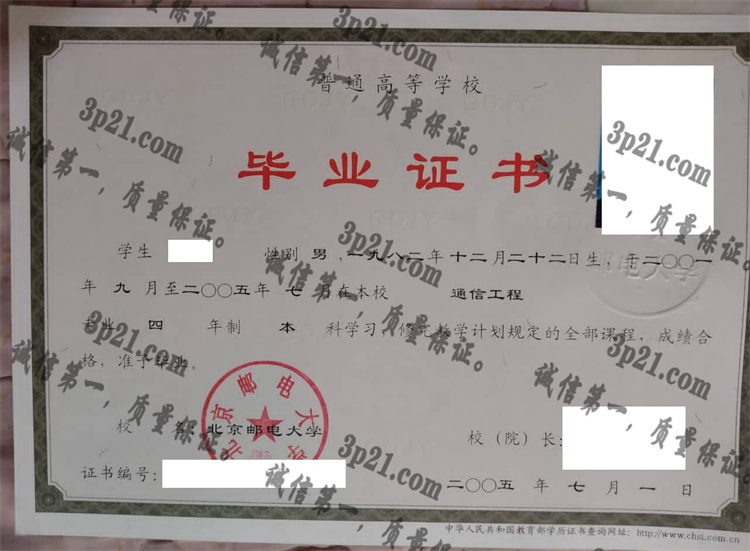 普通高等学校
毕业证书
学生 性别 男，一九八二年 十二月二十二日生，于二〇〇一
年 九 月至二〇〇五年 七 月在本校 通信工程
专业 四 年制 本 科学习，修完教学计划规定的全部课程，成绩合
格，准予毕业。
校 名：北京邮电大学
校（院）长：
证书编号：
二〇〇五 年 七 月 一 日
中华人民共和国教育部学历证书查询网址：http://www.chsi.com.cn
北京邮电大学
邮电大学
3p21.com
诚信第一，质量保证。
3p21.com
诚信第一，质量保证。
3p21.com
诚信第一，质量保证。
3p21.com
诚信第一，质量保证。
3p21.com
诚信第一，质量保证。
3p21.com
诚信第一，质量保证。
3p21.com
诚信第一，质量保证。
3p21.com
诚信第一，质量保证。
3p21.com
诚信第一，质量保证。